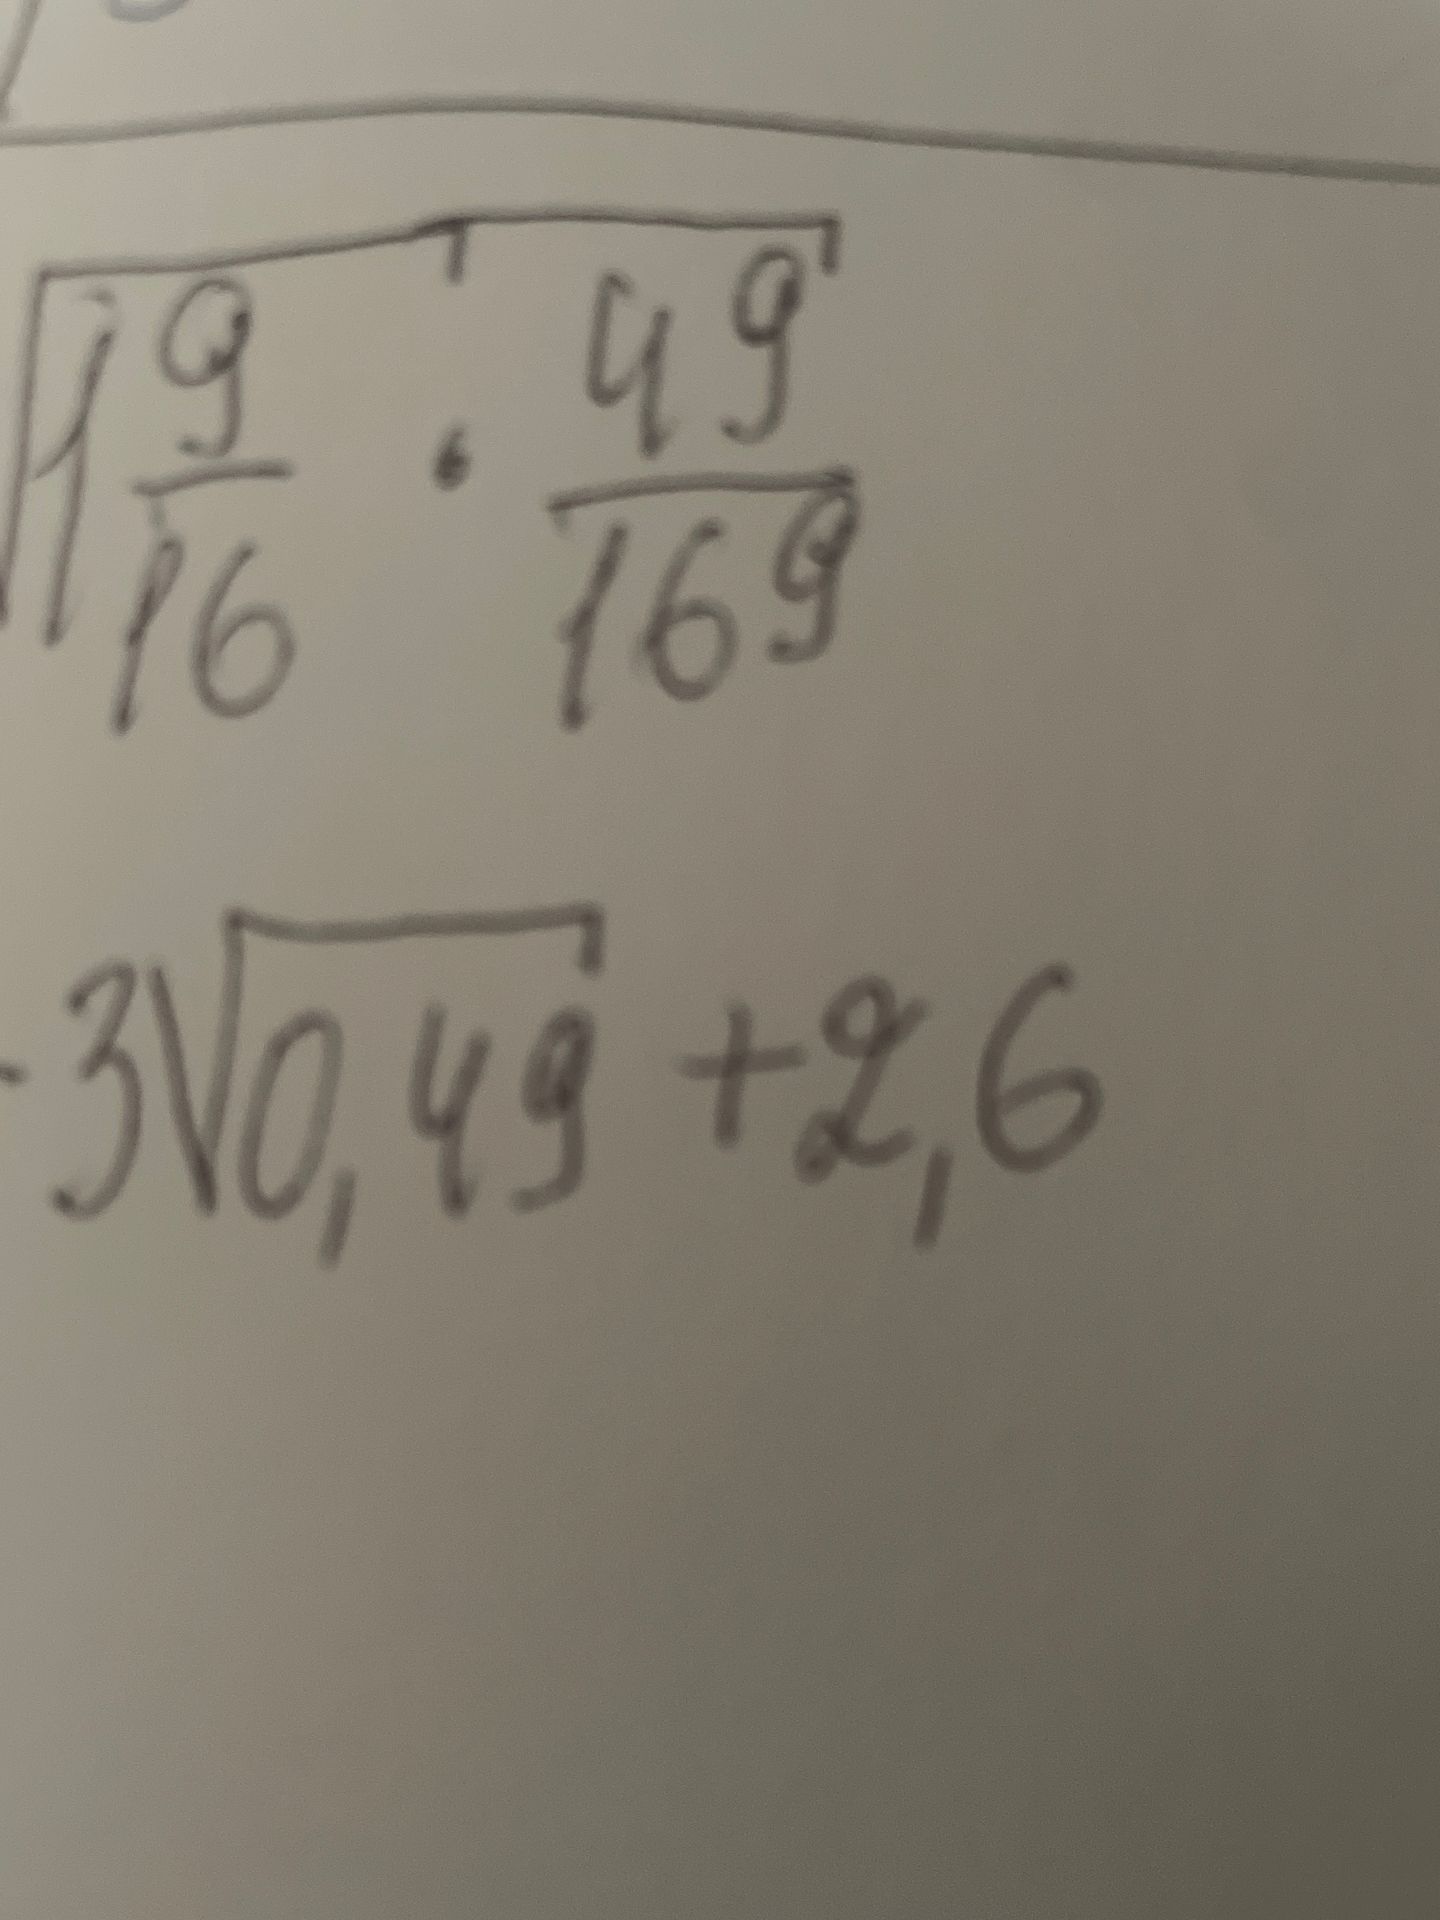 √1 9/16 · 49/169
-3√0,49 +2,6